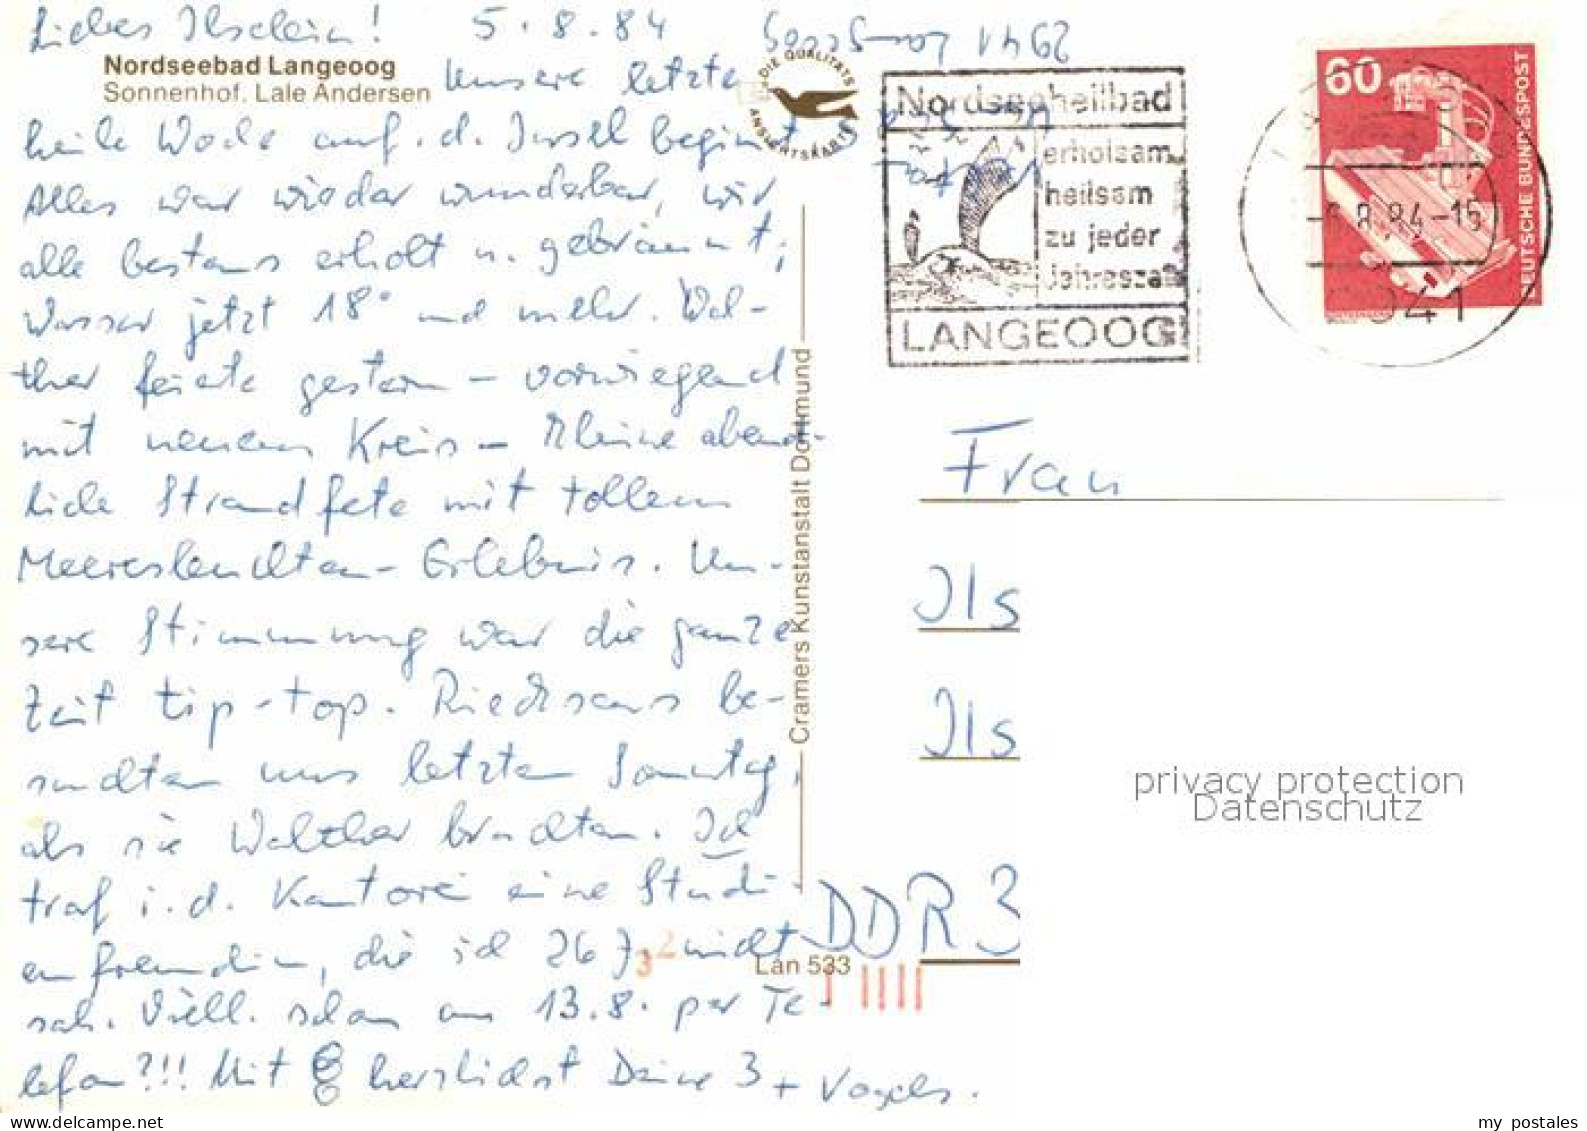 Liebes Ilselein! 5.8.84
2941 Langeoog
Nordseebad Langeoog
Sonnenhof, Lale Andersen
Unsere letzte
heile Woche auf d. Insel beginnt
Alles war wieder wunderbar, wir
alle bestens erholt u. gebräunt,
Wasser jetzt 18° und mehr. Wal-
ther feierte gestern – vorwiegend
mit neuem Kreis – kleine abend-
liche Strandfete mit tollem
Meeresleuchten-Erlebnis. Un-
sere Stimmung war die ganze
Zeit tip-top. 
besuchten uns letzten Sonntag,
als sie Walther brachten. Ich
traf i.d. Kantorei eine Studi-
enfreundin, die ich 26 J. nicht
sah. Viell. schon am 13.8. per Te-
lefon?!!! Mit herzlichst Deine 3 + Vogels.
DIE QUALITÄTS
ANSICHTSKARTE
Nordseeheilbad
erholsam
heilsam
zu jeder
Jahreszeit
LANGEOOG
60
DEUTSCHE BUNDESPOST
-6.8.84-15
2941
Cramers Kunstanstalt Dortmund
Frau
Ils
Ils
DDR 3
Lan 533
privacy protection
Datenschutz
my postales